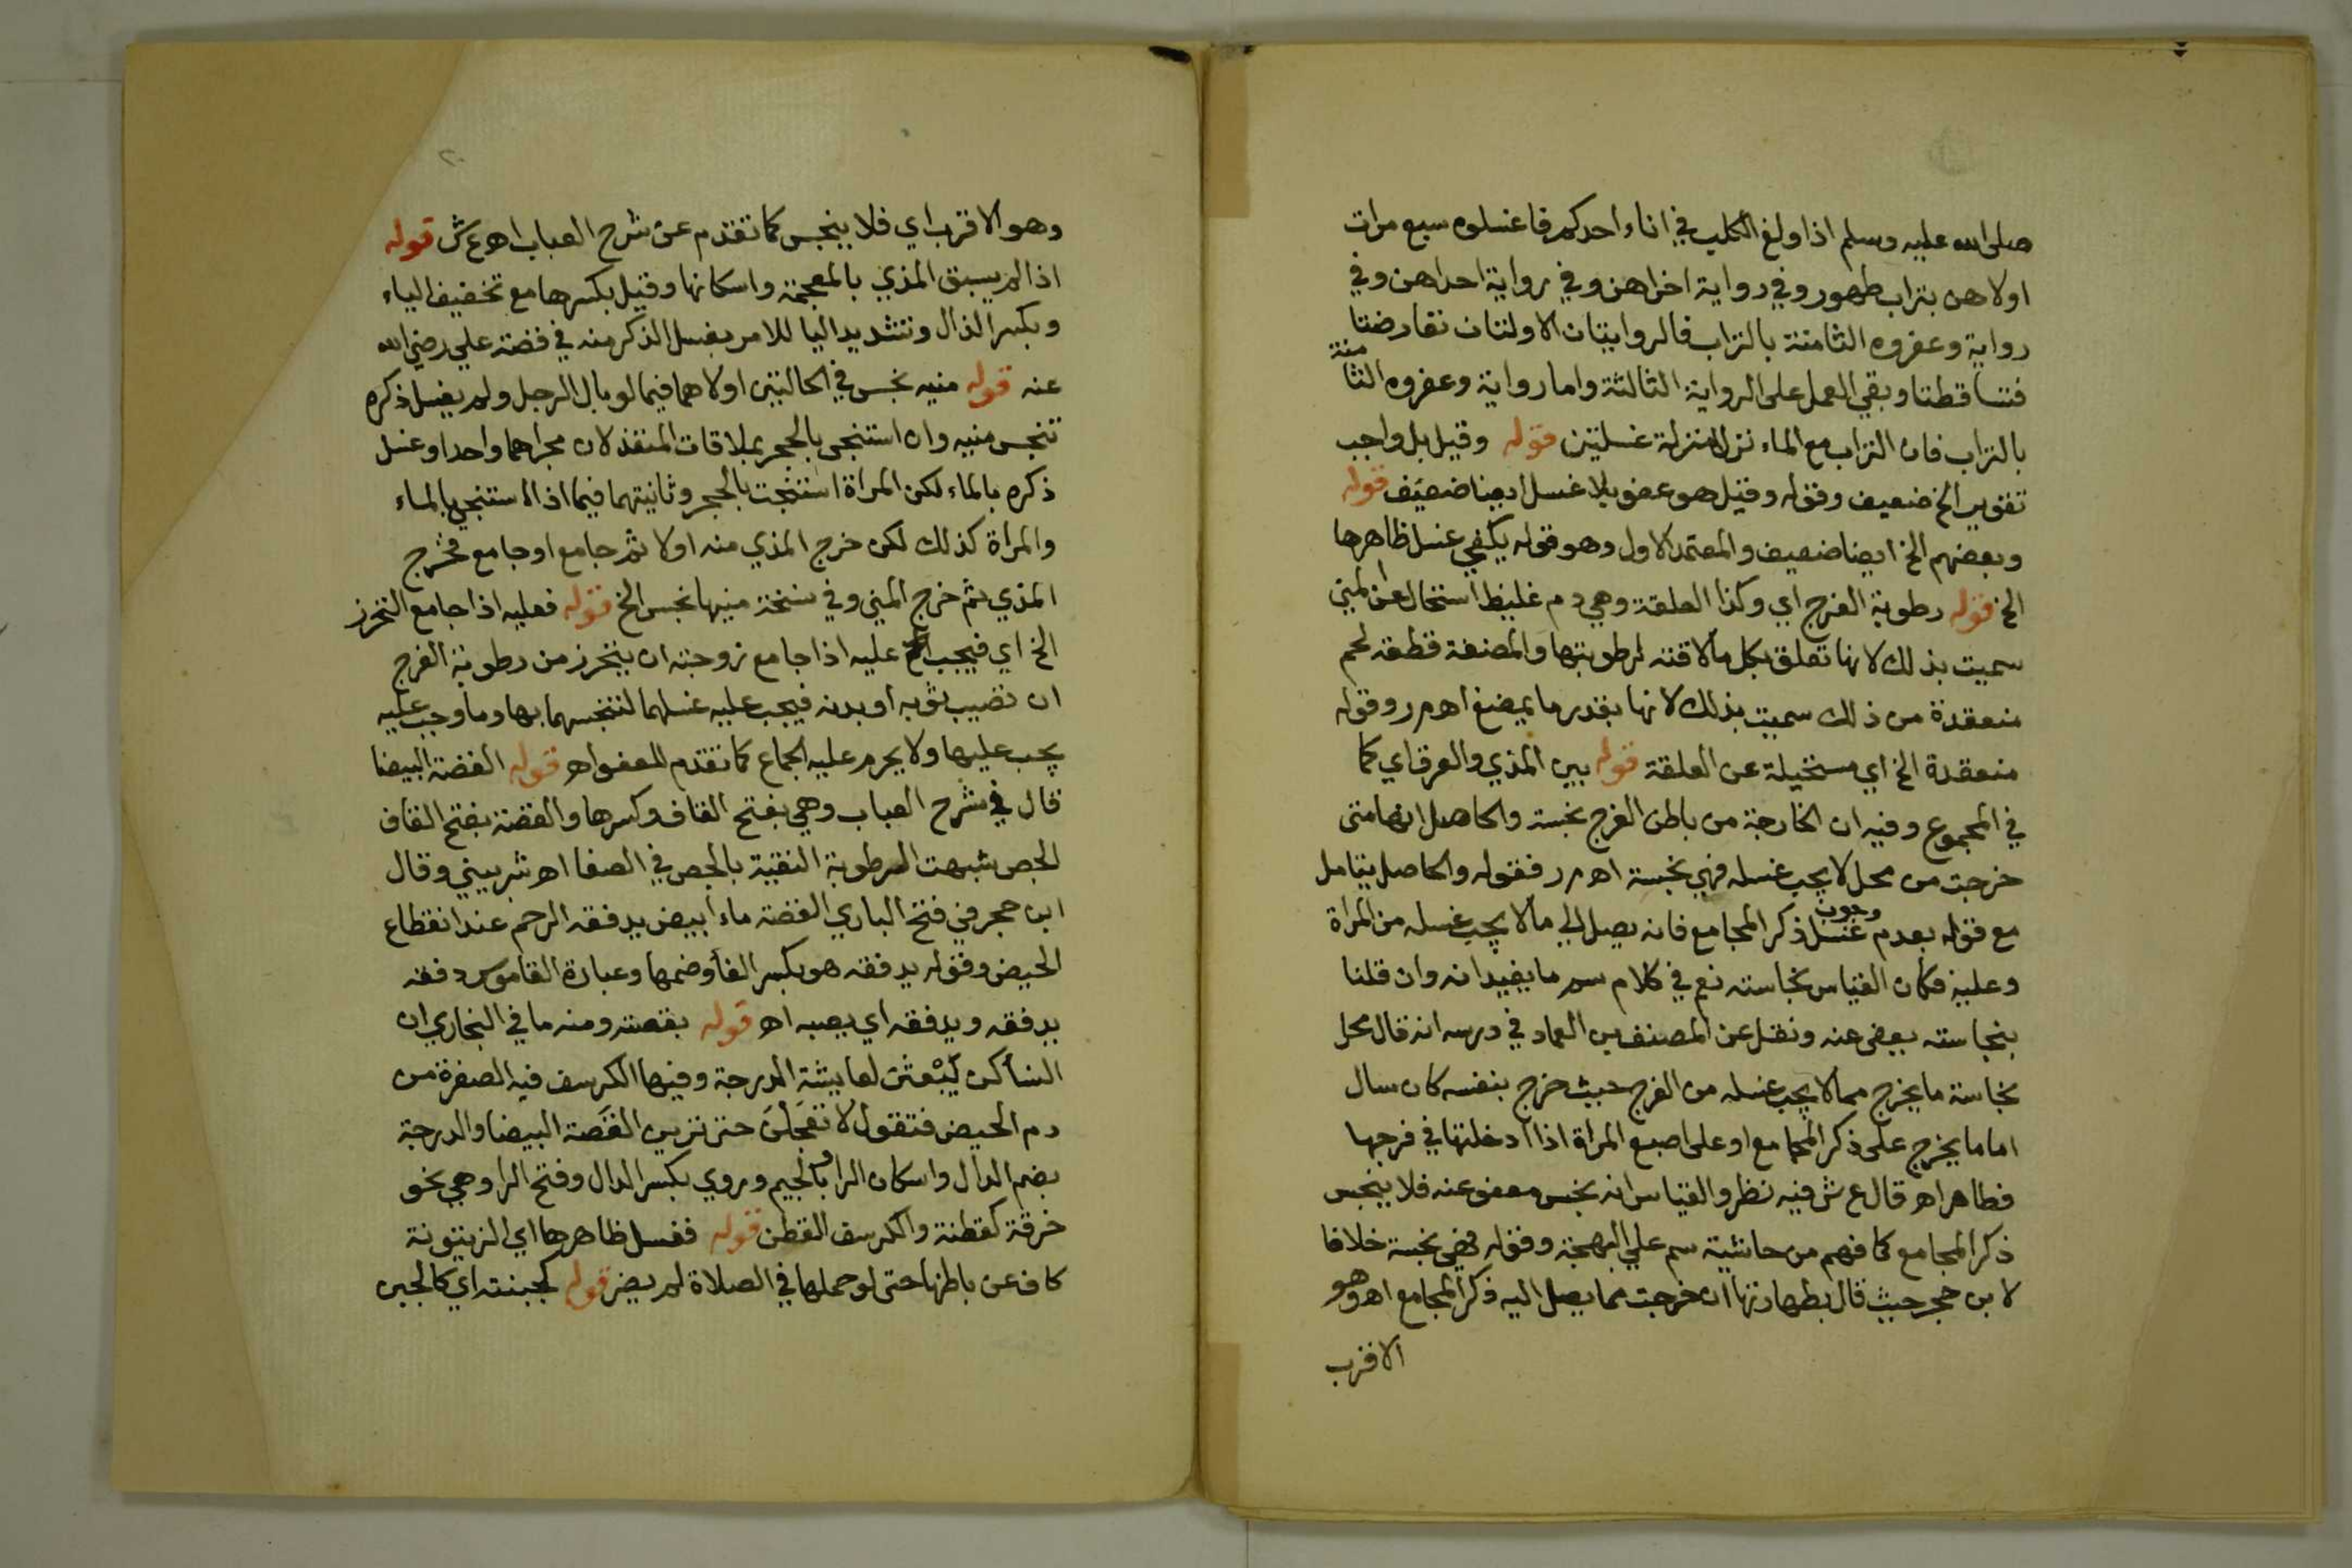 صلى الله عليه وسلم اذا ولغ الكلب في اناء احدكم فاغسلوه سبع مرات
اولاهن بتراب طهور وفي رواية اخراهن وفي رواية احداهن وفي
رواية وعفروه الثامنة بالتراب فالروايتان الاولتان تعارضتا
فتساقطتا وبقي العمل على الرواية الثالثة واما رواية وعفروه الثامنة
بالتراب فان التراب مع الماء نزل منزلة غسلتين قوله وقيل بل واجب
تقوير الخ ضعيف وقوله وقيل هو عفو بلا غسل ايضا ضعيف قوله
وبعضهم الخ ايضا ضعيف والمعتمد الاول وهو قوله يكفي غسل ظاهرها
الخ قوله رطوبة الفرج اي وكذا العلقة وهي دم غليظ استحال عن المني
سميت بذلك لانها تعلق بكل ما لاقته لرطوبتها والمضغة قطعة لحم
منعقدة من ذلك سميت بذلك لانها بقدر ما يمضغ اه م ر وقوله
منعقدة الخ اي مستحيلة عن العلقة قوله بين المذي والعرق اي كما
في المجموع وفيه ان الخارجة من باطن الفرج نجسة والحاصل انها متى
خرجت من محل لا يجب غسله فهي نجسة اه م ر فقوله والحاصل يتامل
مع قوله بعدم وجوب غسل ذكر المجامع فانه يصل الي ما لا يجب غسله من المراة
وعليه فكان القياس نجاسته نعم في كلام سم ما يفيد انه وان قلنا
بنجاسته يعفى عنه ونقل عن المصنف بن العماد في درسه انه قال محل
نجاسة ما يخرج مما لا يجب غسله من الفرج حيث خرج بنفسه كان سال
اما ما يخرج على ذكر المجامع او على اصبع المراة اذا ادخلتها في فرجها
فطاهر اه قال ع ش فيه نظر والقياس انه نجس معفو عنه فلا ينجس
ذكر المجامع كما فهم من حاشية سم علي البهجة وقوله فهي نجسة خلافا
لابن حجر حيث قال بطهارتها ان خرجت مما يصل اليه ذكر المجامع اه وهو
الاقرب
وهو الاقرب اي فلا ينجس كما تقدم عن شرح العباب اه ع ش قوله
اذا لم يسبق المذي بالمعجمة واسكانها وقيل بكسرها مع تخفيف الياء
وبكسر الذال وتشديد اليا للامر بغسل الذكر منه في قضة علي رضي الله
عنه قوله منيه نجس في الحالتين اولاهما فيما لو بال الرجل ولم يغسل ذكره
تنجس منيه وان استنجى بالحجر بملاقات المنفذ لان مجراهما واحد او غسل
ذكره بالماء لكن المراة استنجت بالحجر وثانيتهما فيما اذا استنجي بالماء
والمراة كذلك لكن خرج المذي منه اولا ثم جامع او جامع فخرج
المذي ثم خرج المني وفي نسخة منيها نجس الخ قوله فعليه اذا جامع التحرز
الخ اي فيجب عليه اذا جامع زوجته ان يتحرز من رطوبة الفرج
ان تصيب ثوبه او بدنه فيجب عليه غسلهما لتنجسهما بها وما وجب عليه
يجب عليها ولا يحرم عليه الجماع كما تقدم للعفو اه قوله القصة البيضا
قال في شرح العباب وهي بفتح القاف وكسرها والقصة بفتح القاف
الجص شبهت الرطوبة النقية بالجص في الصفا اه شربيني وقال
ابن حجر في فتح الباري القصة ماء ابيض يدفقه الرحم عند انقطاع
الحيض وقوله يدفقه هو بكسر الفا وضمها وعبارة القاموس دفقه
يدفقه ويدفقه اي يصبه اه قوله بقصته ومنه ما في البخاري ان
النسا كن يبعثن لعايشة الدرجة وفيها الكرسف فيه الصفرة من
دم الحيض فتقول لا تعجلن حتى ترين القصة البيضا والدرجة
بضم الدال واسكان الرا وبالجيم وروي بكسر الدال وفتح الرا وهي نحو
خرقة كقطنة والكرسف القطن قوله فغسل ظاهرها اي الزيتونة
كاف عن باطنها حتى لو حملها في الصلاة لم يضر قوله كجبنته اي كالجبن